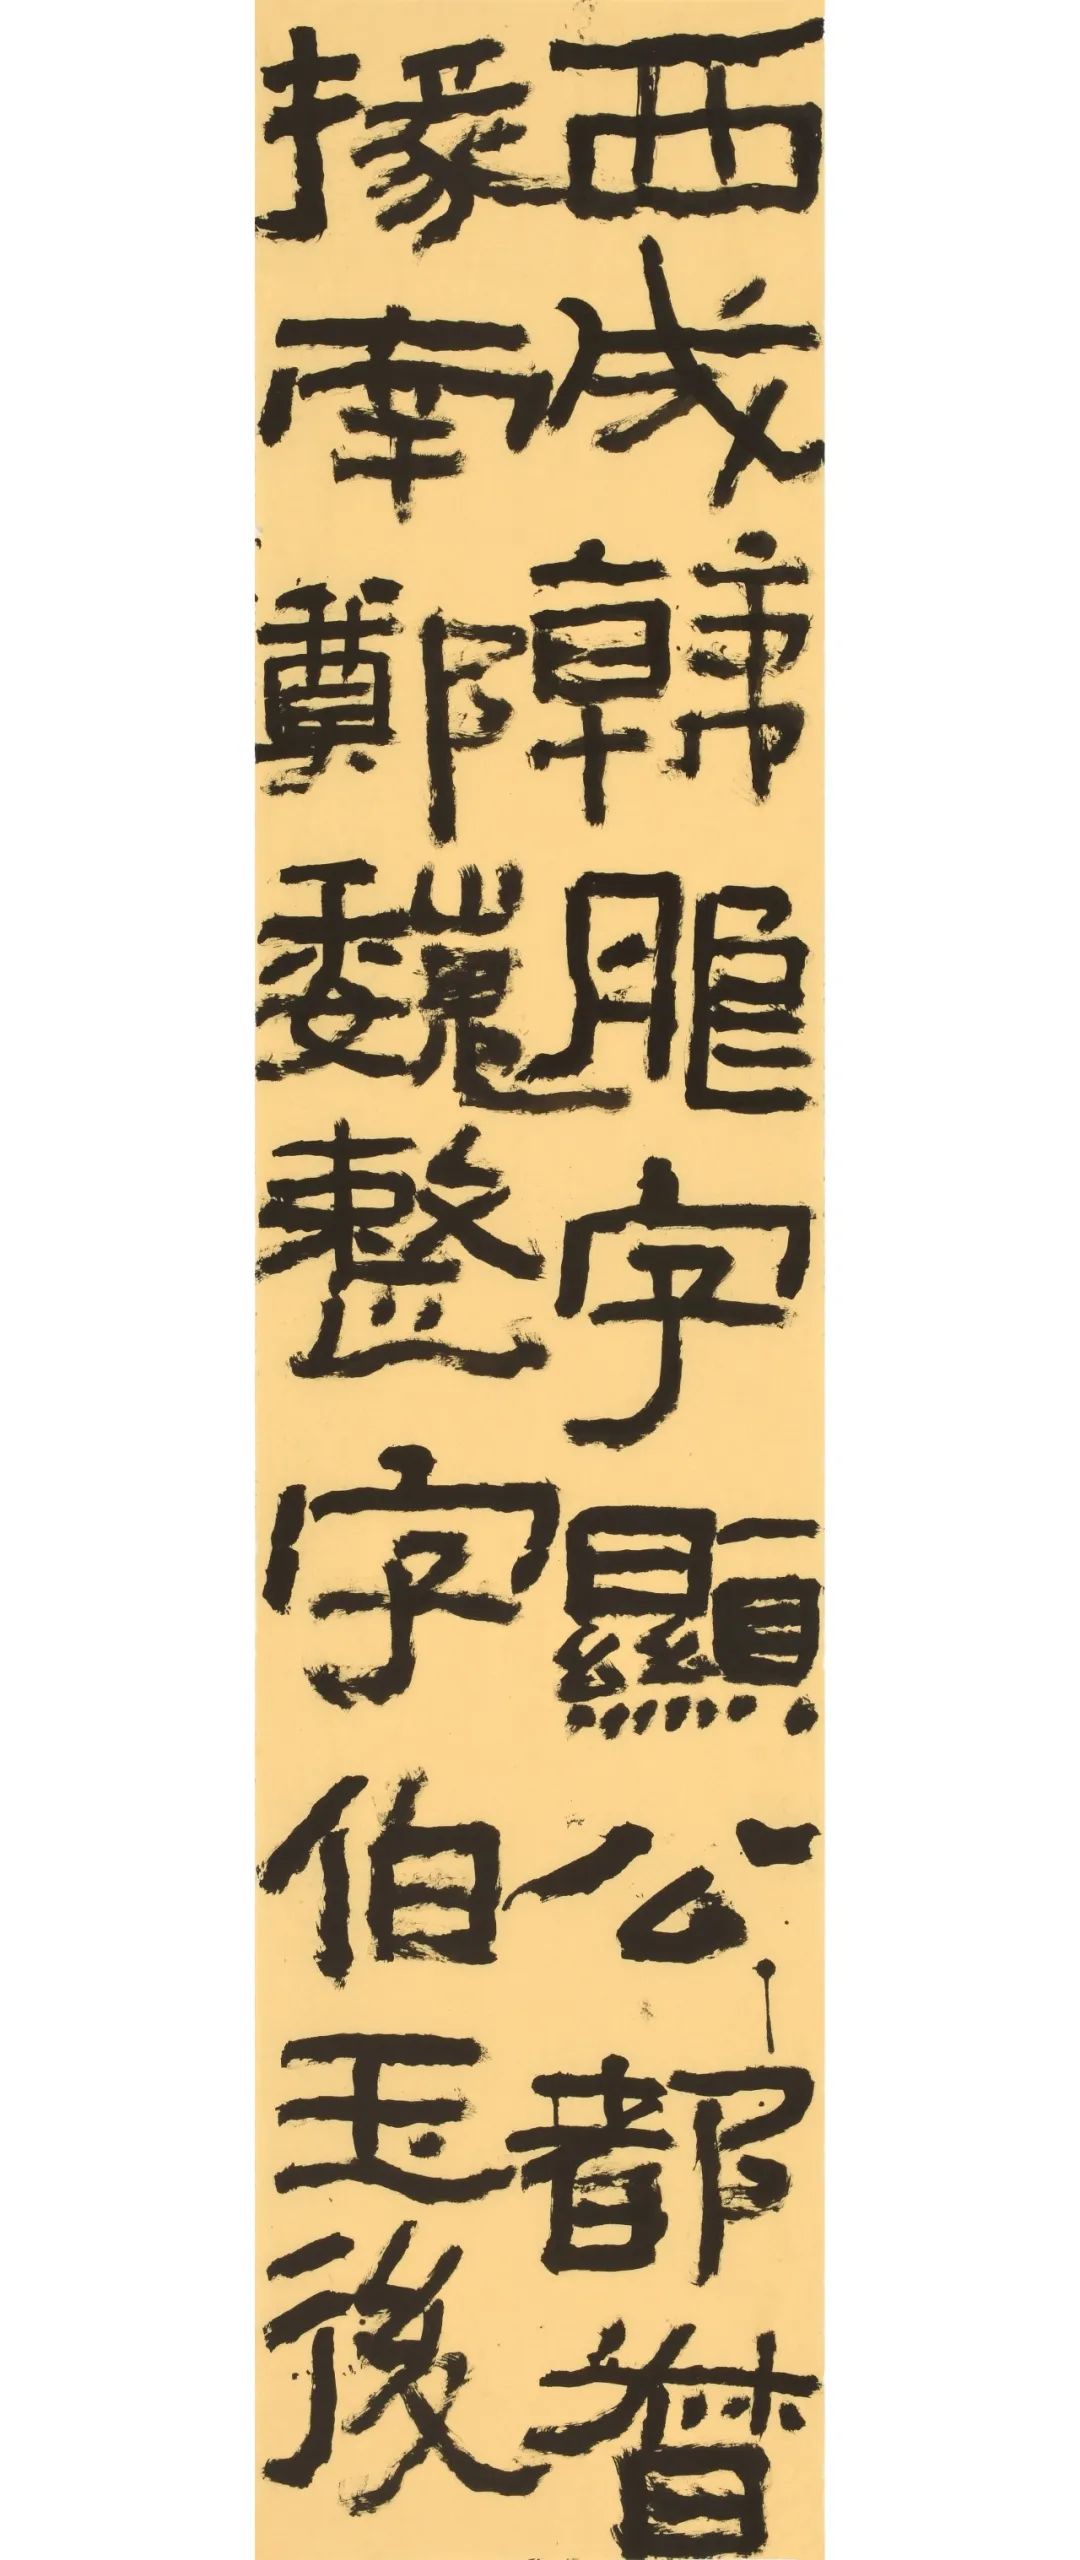 西成韓朖字顯公都督
掾南鄭魏整字伯玉後